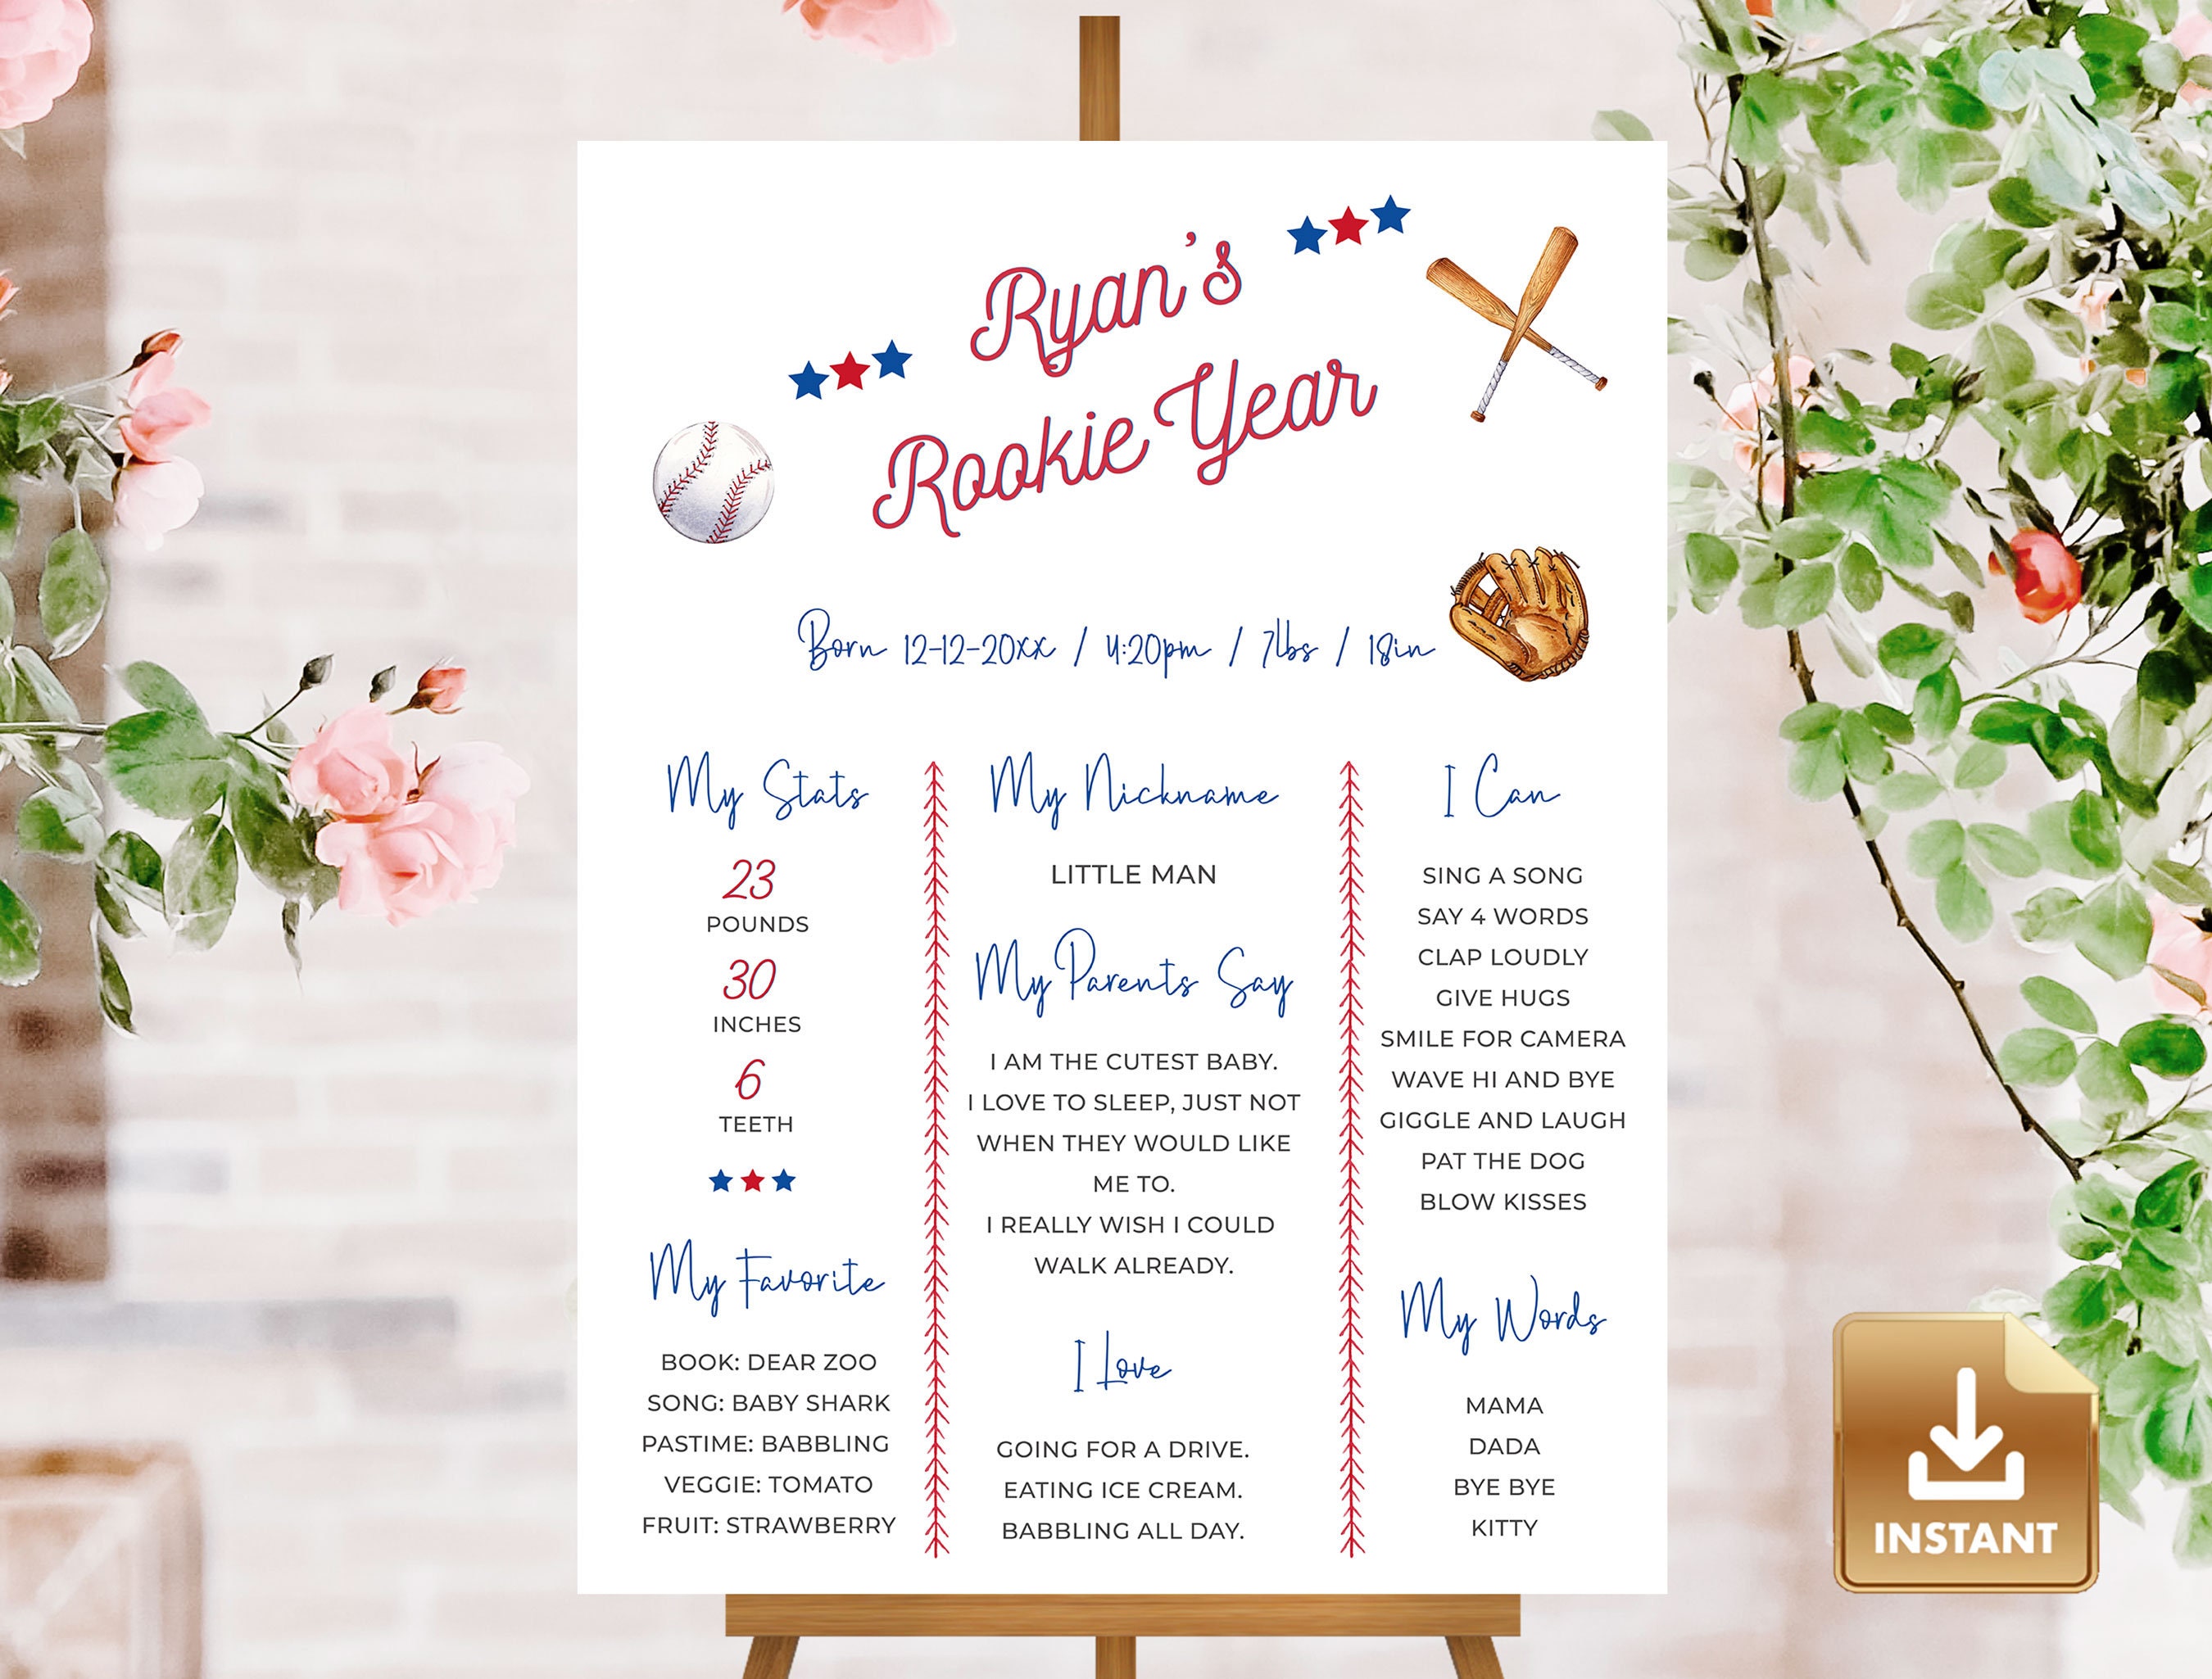 Ryan's
Rookie Year
Born 12-12-20xx / 4:20pm / 7lbs / 18in
My Stats
23
POUNDS
30
INCHES
6
TEETH
My Favorite
BOOK: DEAR ZOO
SONG: BABY SHARK
PASTIME: BABBLING
VEGGIE: TOMATO
FRUIT: STRAWBERRY
My Nickname
LITTLE MAN
My Parents Say
I AM THE CUTEST BABY.
I LOVE TO SLEEP, JUST NOT
WHEN THEY WOULD LIKE
ME TO.
I REALLY WISH I COULD
WALK ALREADY.
I Love
GOING FOR A DRIVE.
EATING ICE CREAM.
BABBLING ALL DAY.
I Can
SING A SONG
SAY 4 WORDS
CLAP LOUDLY
GIVE HUGS
SMILE FOR CAMERA
WAVE HI AND BYE
GIGGLE AND LAUGH
PAT THE DOG
BLOW KISSES
My Words
MAMA
DADA
BYE BYE
KITTY
INSTANT